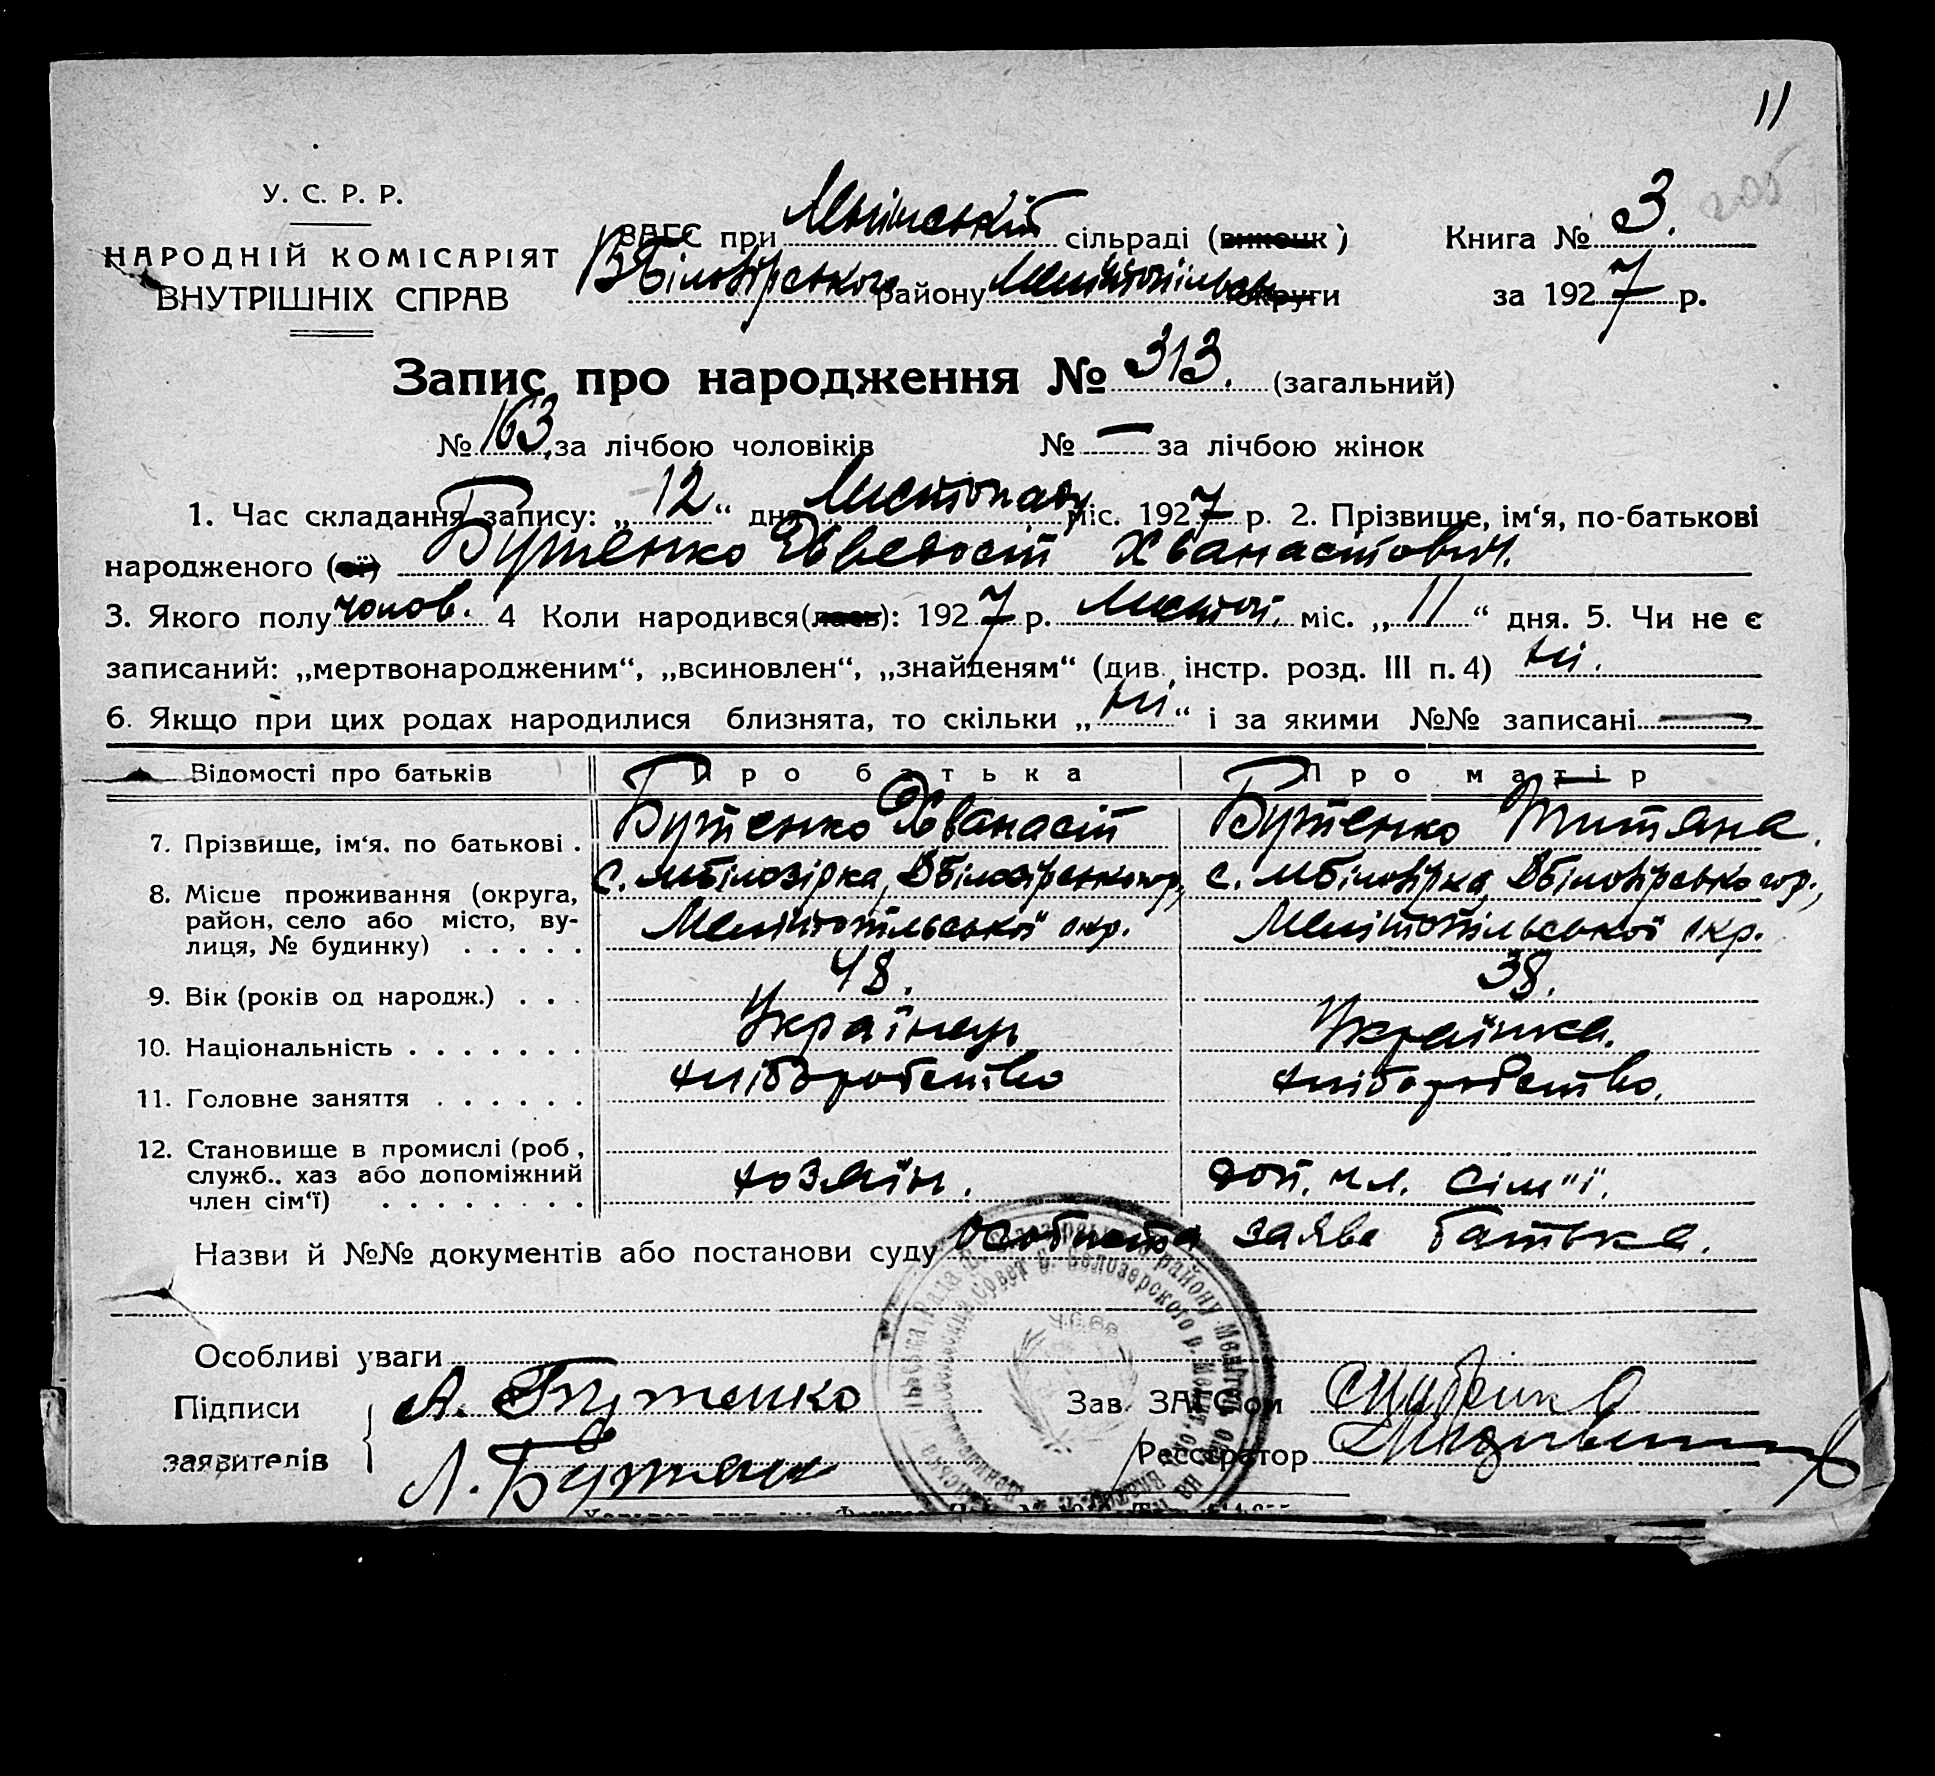 11
У. С. Р. Р.
НАРОДНІЙ КОМІСАРІЯТ
ВНУТРІШНІХ СПРАВ
ЗАГС при сільраді (виконк)
ВБілозірського району Мелітопільськ округи
Книга № 3.
за 1927 р.
Запис про народження № 313. (загальний)
№ 163. за лічбою чоловіків № — за лічбою жінок
1. Час складання запису: „12“ дня Листопаду міс. 1927 р. 2. Прізвище, ім‘я, по-батькові
народженого (ої) Бутенко Хванастович.
3. Якого полу чолов. 4 Коли народився(лась): 1927 р. Листоп. міс. „11“ дня. 5. Чи не є
записаний: „мертвонародженим“, „всиновлен“, „знайденям“ (див. інстр. розд. III п. 4) Ні.
6. Якщо при цих родах народилися близнята, то скільки „Ні“ і за якими №№ записані —
Відомості про батьків Про батька Про матір
7. Прізвище, ім‘я. по батькові . Бутенко Хванасій Бутенко Титяна.
8. Місце проживання (округа, с. МБілозірка, ВБілозірського р., с. МБілозірка, ВБілозірського р.,
район, село або місто, ву- Мелітопільської окр. Мелітопільської окр.
лиця, № будинку) . . . . .
9. Вік (років од народж.) . . . 48. 38.
10. Національність . . . . . . . Українець Українка.
11. Головне заняття . . . . . . хліборобство хліборобство.
12. Становище в промислі (роб,
служб.. хаз або допоміжний хозяїн. доп. чл. сім"ї.
член сім‘ї) . . . . . . . .
Назви й №№ документів або постанови суду Особиста заява батька.
Особливі уваги
Підписи А. Бутенко Зав. ЗАГС'ом
заявителів Л. Бутенко Реєстратор